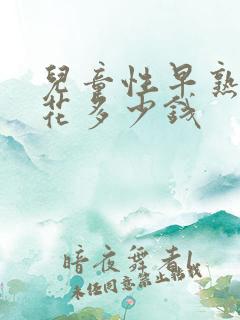 兒童性早熟
花多少錢
暗夜舞者l
未经同意禁止转载